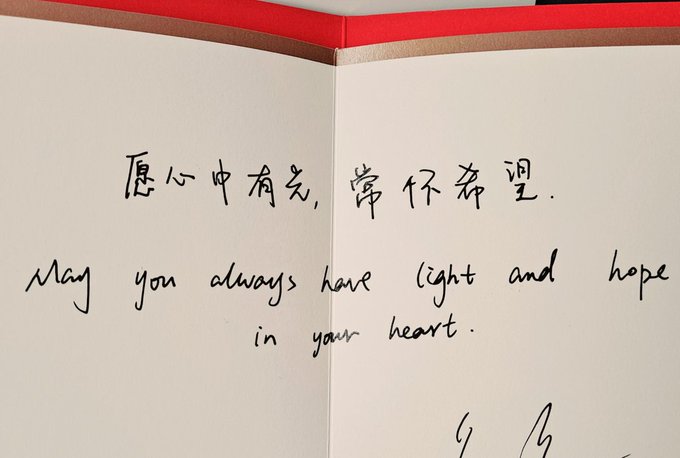 愿心中有光, 常怀希望.
May you always have light and hope
in your heart.